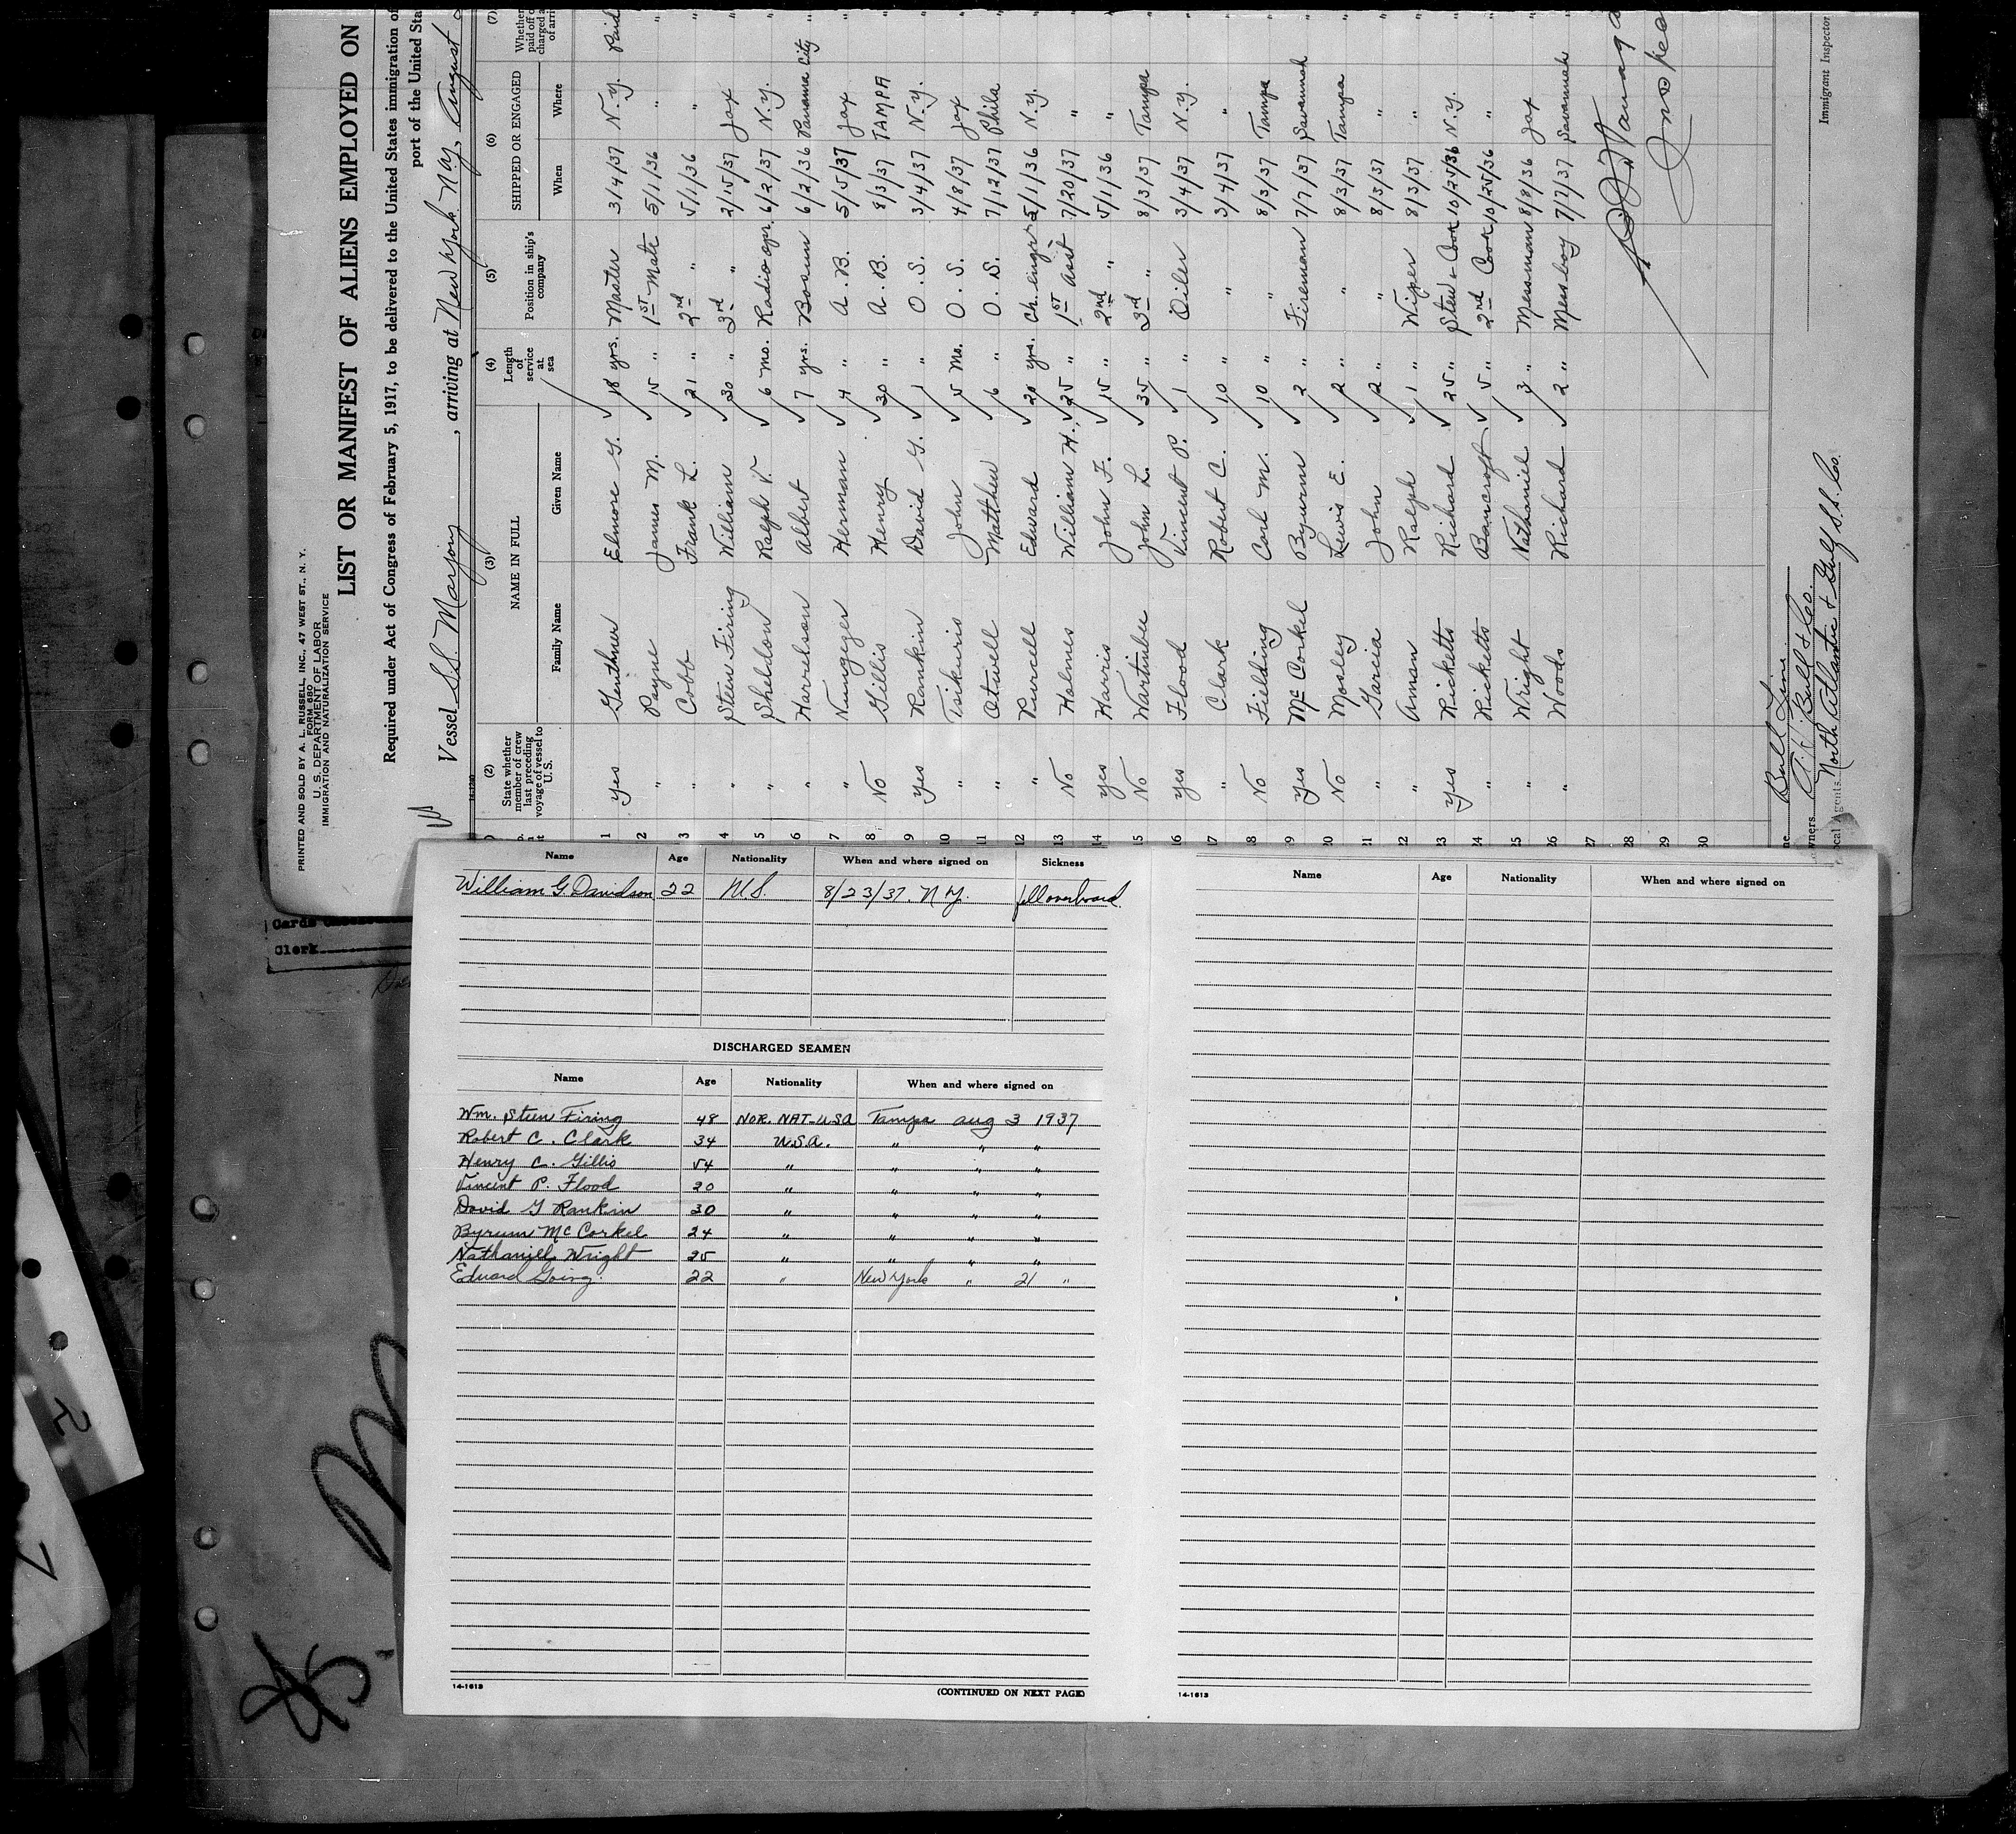 PRINTED AND SOLD BY A. L. RUSSELL, INC., 47 WEST ST., N. Y.
FORM 680
U. S. DEPARTMENT OF LABOR
IMMIGRATION AND NATURALIZATION SERVICE
LIST OR MANIFEST OF ALIENS EMPLOYED ON
Required under Act of Congress of February 5, 1917, to be delivered to the United States immigration of
port of the United Sta
Vessel S.S. Marjory, arriving at New York. N.Y, August
(2) (3) (4) (5) (6) (7)
State whether member of crew last preceding voyage of vessel to U.S. NAME IN FULL Length of service at sea Position in ship's company SHIPPED OR ENGAGED Whether paid off o charged a of arri
Family Name Given Name When Where
1 yes Genthner Elmore G. 18 yrs. Master 3/4/37 N.Y. Paid
2 " Payne James M. 15 " 1st Mate 5/1/36 " "
3 " Cobb Frank L. 21 " 2nd " 5/1/36 " "
4 " Steen Firing William 30 " 3rd " 2/15/37 Jax "
5 " Sheldon Ralph V. 6 mo. Radio opr. 6/2/37 N.Y. "
6 " Harrelson Albert 7 yrs. Bosun 6/2/36 Panama City "
7 " Nungezer Herman 4 " A.B. 5/5/37 Jax "
8 No Gillis Henry 30 " A.B. 8/3/37 TAMPA "
9 yes Rankin David G. 1 " O.S. 3/4/37 N.Y. "
10 " Tsikuris John 5 mo. O.S. 4/8/37 Jax "
11 " Otwell Matthew 6 " O.S. 7/12/37 Phila "
12 " Purcell Edward 20 yrs. Ch. engr 5/1/36 N.Y. "
13 No Holmes William H. 25 " 1st Asst 7/20/37 " "
14 yes Harris John F. 15 " 2nd " 5/1/36 " "
15 No Wartinbee John L. 35 " 3rd " 8/3/37 Tampa "
16 yes Flood Vincent P. 1 " Oiler 3/4/37 N.Y. "
17 " Clark Robert C. 10 " " 3/4/37 " "
18 No Fielding Carl M. 10 " " 8/3/37 Tampa "
19 yes McCorkel Byurm 2 " Fireman 7/7/37 Savannah "
20 No Mosley Lewis E. 2 " " 8/3/37 Tampa "
21 " Garcia John 2 " " 8/3/37 " "
22 " Amson Ralph 1 " Wiper 8/3/37 " "
23 yes Ricketts Richard 25 " Stew & Cook 10/25/36 N.Y. "
24 " Ricketts Bancroft 5 " 2nd Cook 10/25/36 " "
25 " Wright Nathaniel 3 " Messman 8/8/36 Jax "
26 " Woods Richard 2 " Messboy 7/7/37 Savannah "
27
28
29
30
Bull Line
A. H. Bull & Co.
North Atlantic & Gulf S.S. Co.
Immigrant Inspector
Clerk
Name Age Nationality When and where signed on Sickness
William G. Davidson 22 U.S. 8/23/37. N.Y. fell overboard
DISCHARGED SEAMEN
Name Age Nationality When and where signed on
Wm. Steen Firing 48 NOR. NAT-USA Tampa Aug 3 1937
Robert C. Clark 34 U.S.A. " " "
Henry C. Gillis 54 " " " "
Vincent P. Flood 20 " " " "
David G Rankin 30 " " " "
Byrum McCorkel 24 " " " "
Nathaniel Wright 25 " " " "
Edward Going 22 " New York " 21 "
14-1613
(CONTINUED ON NEXT PAGE)
Name Age Nationality When and where signed on
14-1613